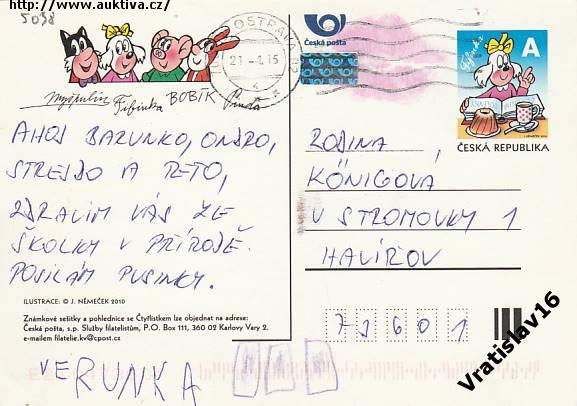 http://www.auktiva.cz/
5098
Myšpulín Fifinka BOBÍK Pinďa
OSTRAVA 02
21-1.15
Česká pošta
Fifinka
A
ČESKÁ REPUBLIKA
AHOJ BARUNKO, ONDRO,
STREJDO A TETO,
ZDRAVÍM VÁS ZE
ŠKOLKY V PŘÍRODĚ.
POSÍLÁM PUSINKY.
RODINA
KÖNIGOVÁ
U STROMOVKY 1
HAVÍŘOV
73601
ILUSTRACE: © J. NĚMEČEK 2010
Známkové sešitky a pohlednice se Čtyřlístkem lze objednat na adrese:
Česká pošta, s.p. Služby filatelistům, P.O. Box 111, 360 02 Karlovy Vary 2.
e-mailem filatelie.kv@cpost.cz
VERUNKA
Vratislav16